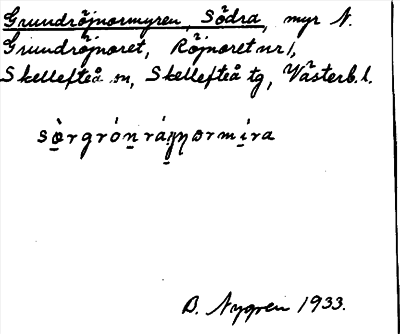 Grundröjnormyren, Södra, myr N.
Grundröjnoret, Röjnoret nr 1,
Skellefteå sn, Skellefteå tg, Västerb. l.
B. Nygren 1933.